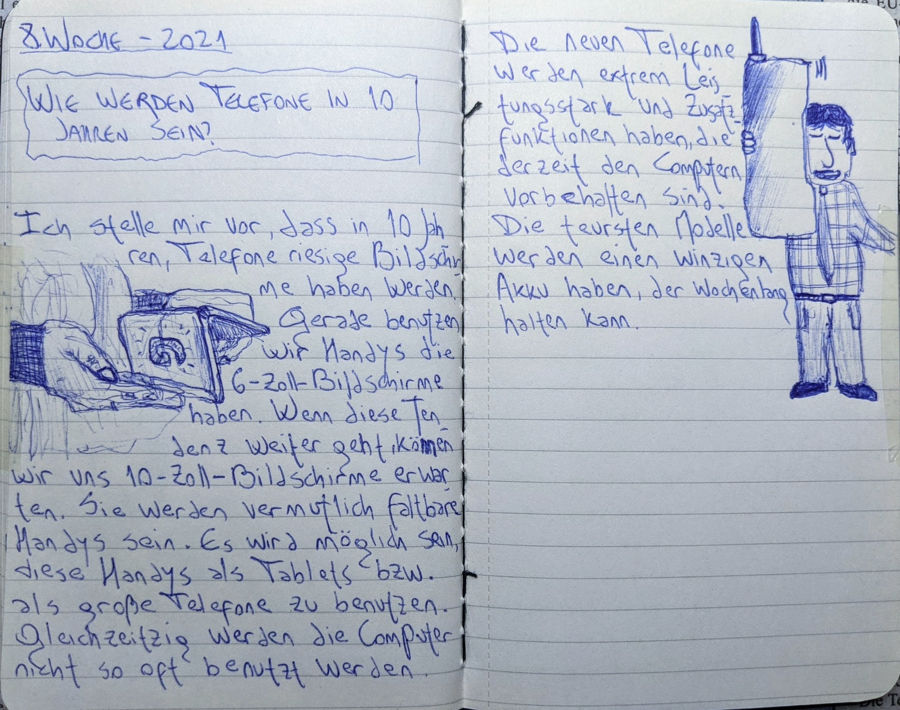 8. Woche - 2021
Wie werden Telefone in 10
Jahren sein?
Ich stelle mir vor, dass in 10 Jah
ren, Telefone riesige Bildschir
me haben werden.
Gerade benutzen
wir Handys die
6-Zoll-Bildschirme
haben. Wenn diese Ten
denz weiter geht, können
wir uns 10-Zoll-Bildschirme erwar
ten. Sie werden vermutlich faltbare
Handys sein. Es wird möglich sein,
diese Handys als Tablets bzw.
als große Telefone zu benutzen.
Gleichzeitzig werden die Computer
nicht so oft benutzt werden.
Die neuen Telefone
werden extrem Leis
tungsstark und Zusatz-
funktionen haben, die
derzeit den Computern
vorbehalten sind.
Die teursten Modelle
werden einen winzigen
Akku haben, der Wochenlang
halten kann.